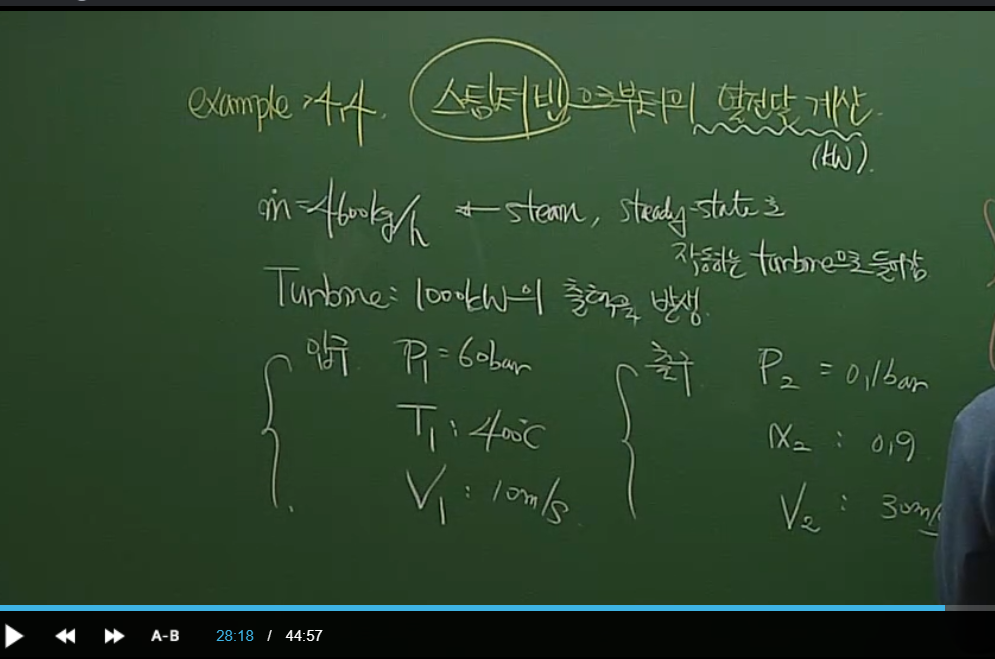 example > 4.4. 스팀터빈으로부터의 열전달 계산.
(kW).
ṁ=4600kg/h ← steam, steady-state로
작동하는 turbine으로 들어감
Turbine: 1000kW의 출력을 발생.
입구 P₁ = 60bar
T₁ : 400℃
V₁ : 10m/s
출구 P₂ = 0.1bar
x₂ : 0.9
V₂ : 30m/
A-B 28:18 / 44:57